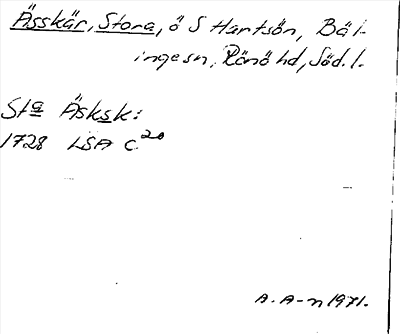 Ässkär, Stora, ö S Hartsön, Bäl-
ingesn, Rönö hd, Söd. l.
Sta Äsksk:
1728 LSA C 20
A. A-n 1971.